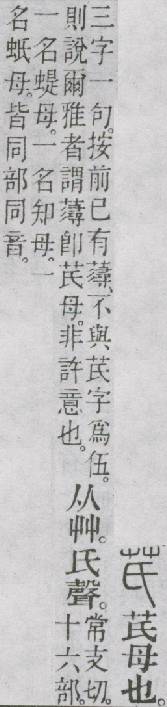 芪 芪母也。
三字一句。按前已有蕁、不與芪字爲伍。
則說爾雅者謂蕁卽芪母。非許意也。
从艸。氏聲。
常支切。
十六部。
一名蝭母。一名知母。一
名蚔母。皆同部同音。